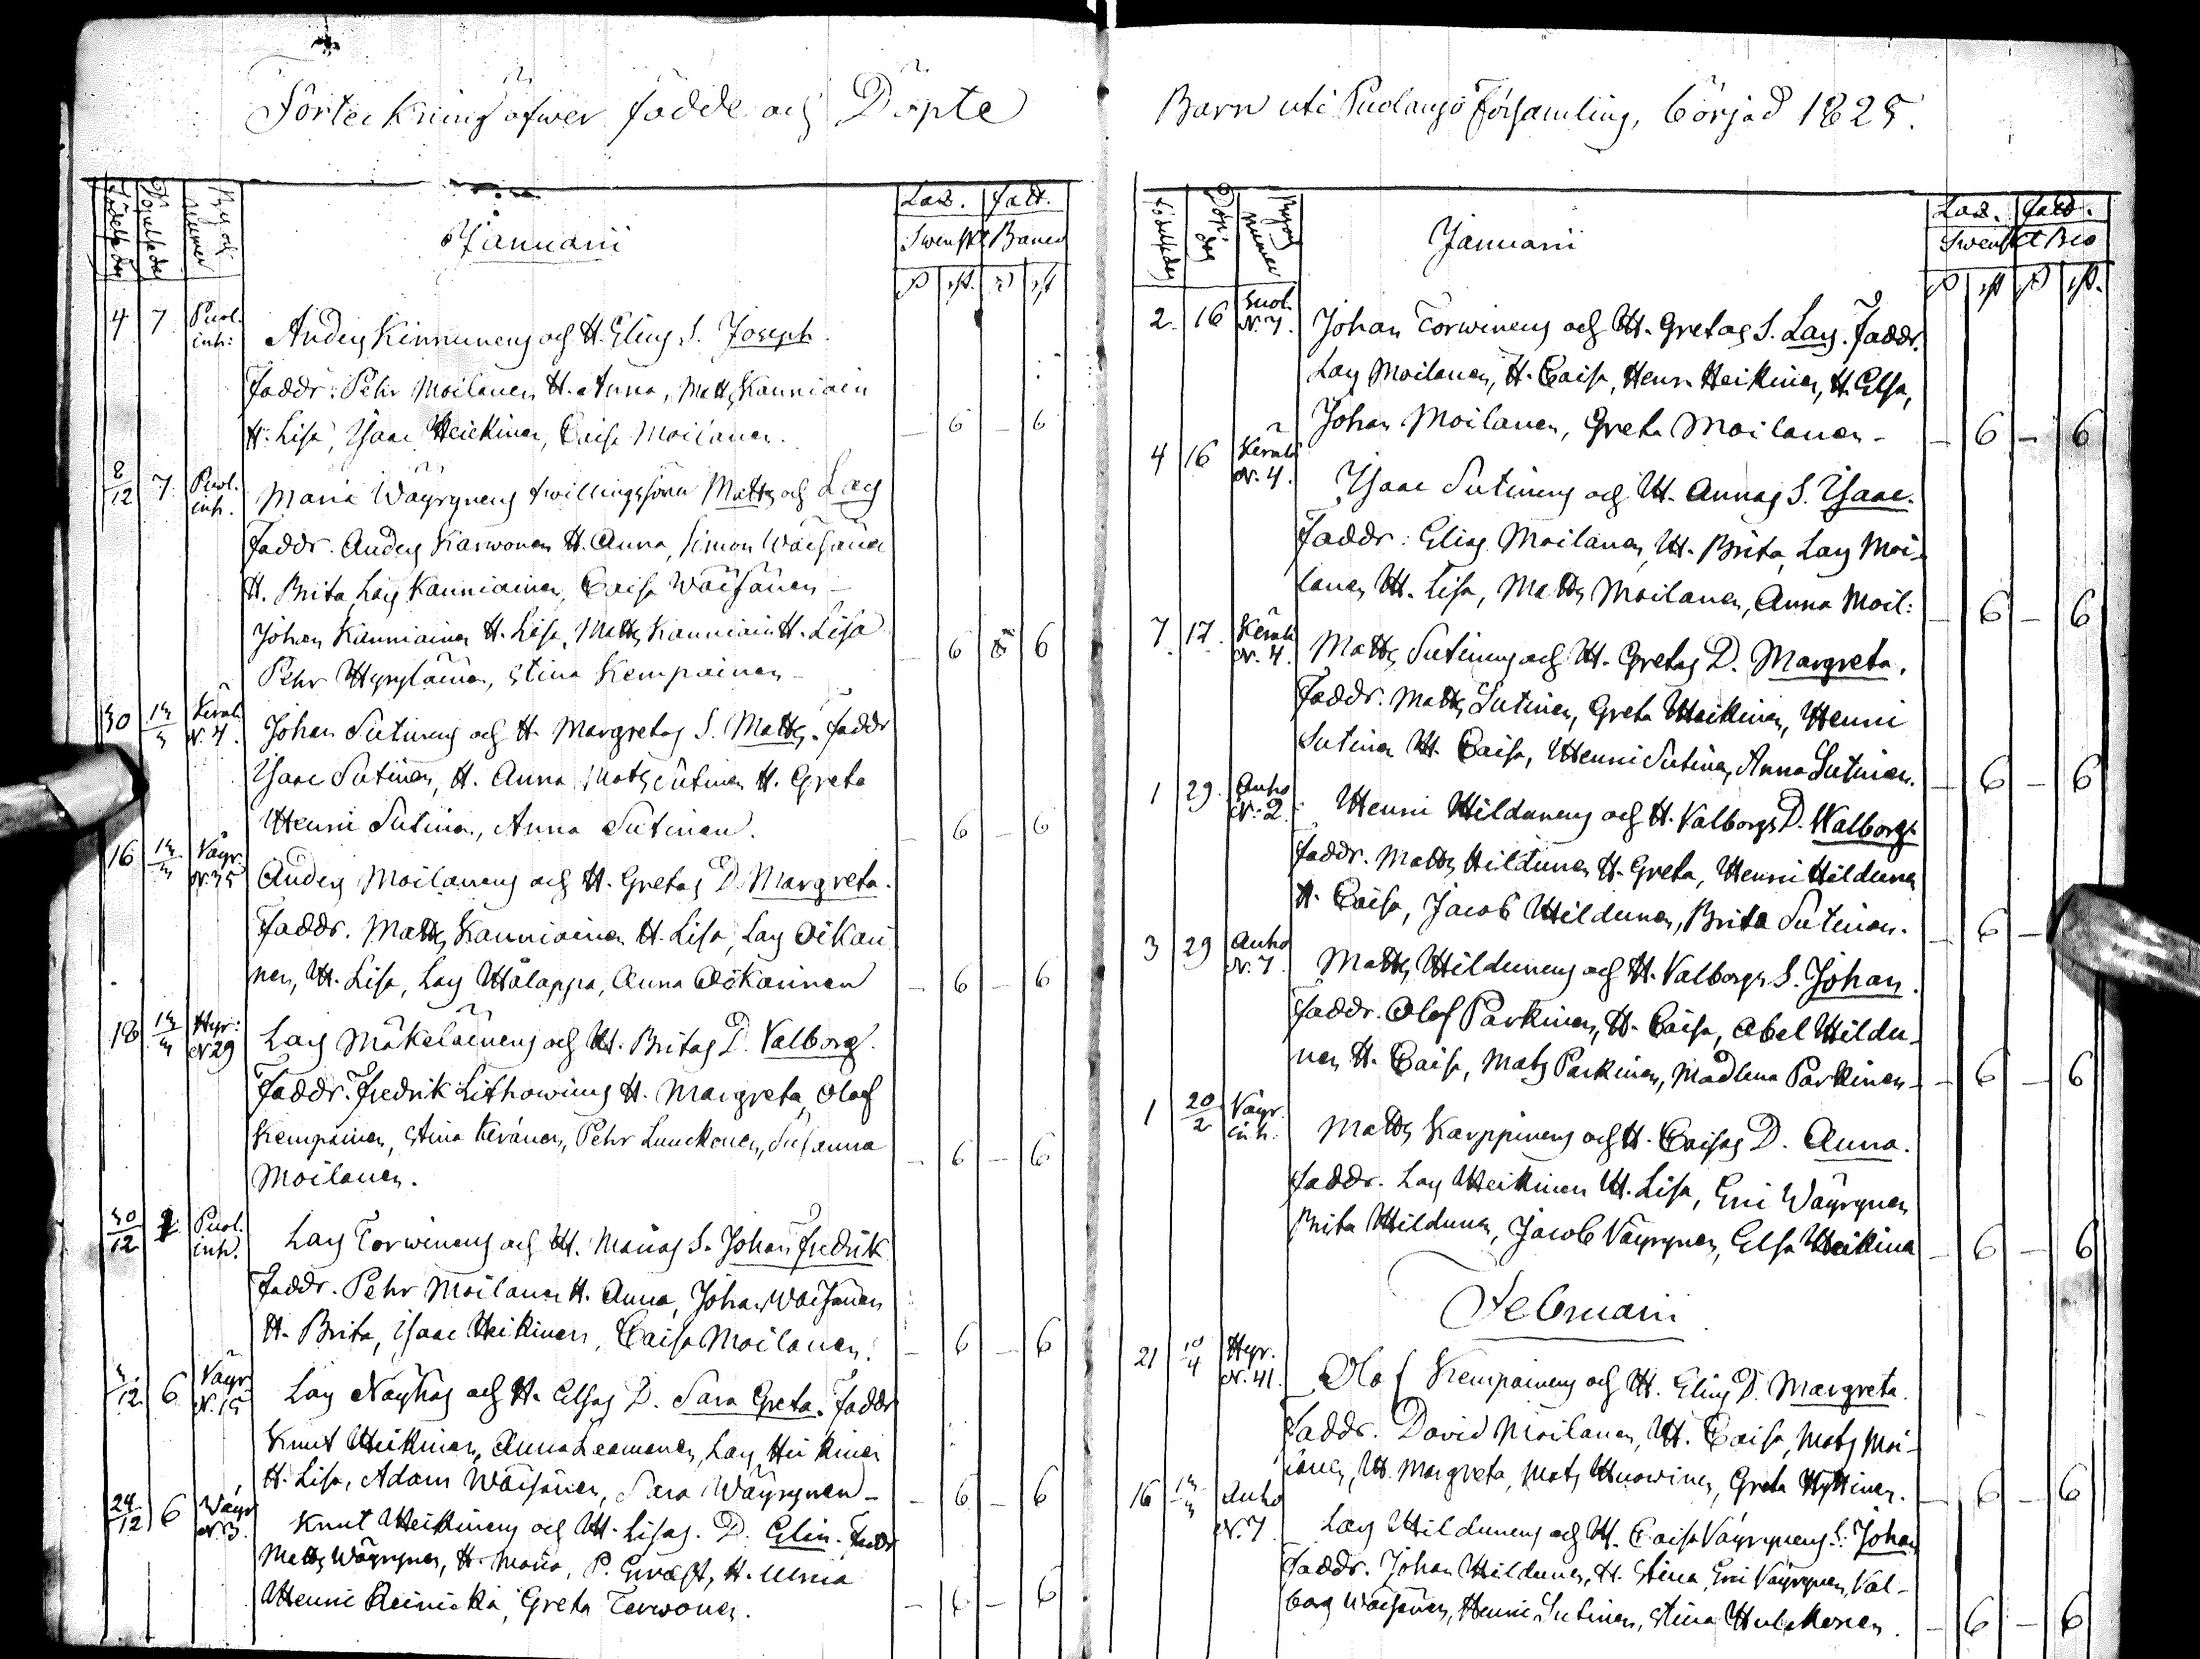 Förteckning öfwer födde och Döpte
Födelse dag Döpelse dag By och nummer
Januarii
Laz. Fatt.
Swenskt Banco
ß rst. ß rst
4 7 Puol. inh: Anders Kinnunens och H. Elins S. Joseph.
Faddr: Pehr Moilanen H. Anna, Matts Kanniain
H. Lisa, Isaac Heickinen, Caisa Moilanen. – 6 – 6
8/12 7. Puol. inh. Maria Wäyrynens twillingssöner Matts och Lars
Faddr. Anders Karwonen H. Anna, Simon Wäisänen
H. Brita, Lars Kanniainen, Caisa Wäisänen –
Johan Kanniainen H. Lisa, Matts Kanniain H. Lisa – 6 6
Pehr Hyryläinen, Stina Kempainen –
30 Keräl. N. 4. Johan Sutinens och H. Margretas S. Matts. Faddr
Isaac Sutinen, H. Anna, Mats Sutinen H. Greta
Henric Sutinen, Anna Sutinen. – 6 – 6
16 Väyr. N. 35 Anders Moilanens och H. Gretas D. Margreta.
Faddr. Matts Kanniainen H. Lisa, Lars Oikari
nen, H. Lisa, Lars Hålappa, Anna Oikarinen – 6 – 6
18 Hyr: N 29 Lars Mäkeläinens och H. Britas D. Valborg.
Faddr. Fredrik Lithowius H. Margreta, Olof
Kempainen, Stina Keränen, Pehr Lunckonen, Susanna – 6 – 6
Moilanen.
30/12 Puol. inh. Lars Torwinens och H. Marias S. Johan Fredrik
Faddr. Pehr Moilanen H. Anna, Johan Wäisänen
H. Brita, Isaac Heikinen, Caisa Moilanen. – 6 – 6
/12 6 Väyr N. 15 Lars Näyhäs och H. Elsas D. Sara Greta. Faddr
Knut Heikinen, Anna Leamanen, Lars Heikinen
H. Lisa, Adam Wäisänen, Sara Wäyrynen – – 6 – 6
24/12 6 Wäyr N. 3. Knut Heikinens och H. Lisas. D. Elin. Faddr
Matts Wäyrynen, H. Maria, P. Envalst, H. Ulrica
Henric Reinicka, Greta Terwonen. – 6 – 6
Barn uti Puolango Församling, börjad 1825.
Födelsedag Döp: dag By och numer
Januarii
Laz. Fatt.
Swenskt Bco
ß rst ß rst.
2. 16 Puol. N. 7. Johan Torwinens och H. Gretas S. Lars. Faddr.
Lars Moilanen, H. Caisa, Henr. Heikinen, H. Elsa,
Johan Moilanen, Greta Moilanen – – 6 – 6
4 16 Keräl N. 4. Isaac Sutinens och H. Annas S. Isaac.
Faddr: Elias Moilanen, H. Brita, Lars Moi-
lanen H. Lisa, Matts Moilanen, Anna Moil: – 6 – 6
7. 17. Keräl N. 4. Matts Sutinens och H. Gretas D. Margreta.
Faddr. Matts Sutinen, Greta Heikinen, Henric
Sutinen H. Caisa, Henric Sutinen, Anna Sutinen. – 6 – 6
1 29. Auho N. 2. Henric Hildunens och H. Valborgs D. Walborg
Faddr. Matts Hildunen H. Greta, Henric Hildunen
H. Caisa, Jacob Hildunen, Brita Sutinen. – 6 –
3 29 Auho N. 7. Matts Hildunens och H. Valborgs S. Johan.
Faddr. Olof Parkinen, H. Caisa, Abel Hildu-
nen H. Caisa, Mats Parkinen, Madlena Parkinen – – 6 – 6
1 20/2 Väyr. inh. Matts Karppinens och H. Caisas D. Anna.
Faddr. Lars Heikinen H. Lisa, Eric Wäyrynen
Brita Hildunen, Jacob Väyrynen, Elsa Heikinen – 6 – 6
Februarii
21 10/4 Hyr. N. 41. Olof Kempainens och H. Elins D. Margreta.
Faddr. David Moilanen, H. Caisa, Mats Moi-
lanen, H. Margreta, Mats Huowinen, Greta Hyttinen. – 6 – 6
16 Auho N. 7 Lars Hildunens och H. Caisa Väyrynens S. Johan
Faddr. Johan Hildunen, H. Stina, Eric Väyrynen, Val-
borg Wäisänen, Henric Sutinen, Stina Hulckonen. – 6 – 6